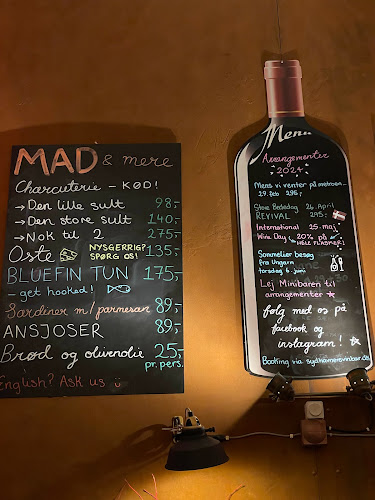 MAD & mere
Charcuterie – KØD!
→ Den lille sult 98,-
→ Den store sult 140,-
→ Nok til 2 275,-
Oste NYSGERRIG? SPØRG OS! 135,-
BLUEFIN TUN 175,-
– get hooked!
Sardiner m/parmesan 89,-
ANSJOSER 89,-
Brød og olivenolie 25,-
pr. pers.
English? Ask us
Menu
Arrangementer
2024
Mens vi venter på metroen...
29. Feb 295,-
Store Bededag 26. April
REVIVAL 295,-
International 25. maj
Wine Day: 20% på
HELE FLASKER!
Sommelier besøg
fra Ungarn
torsdag 6. juni
Lej Minibaren til
arrangementer
Følg med os på
facebook og
instagram!
Booking via sydhavnensvinbar.dk